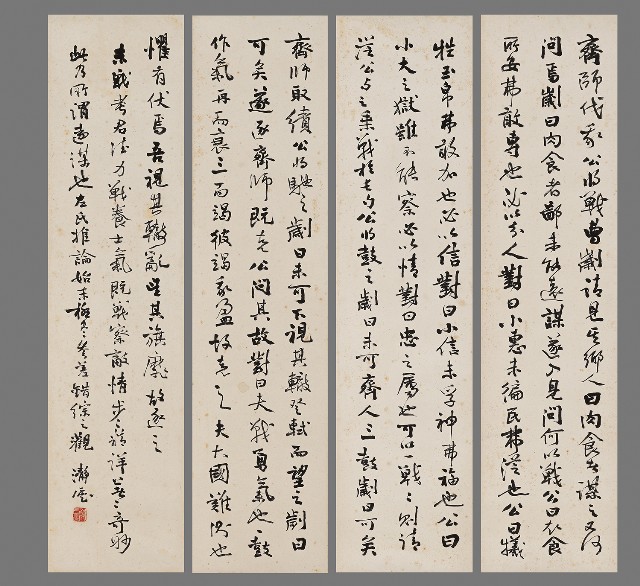 齊師伐我公將戰曹劌請見其鄉人曰肉食者謀之又何
間焉劌曰肉食者鄙未能遠謀遂入見問何以戰公曰衣食
所安弗敢專也必以分人對曰小惠未徧民弗從也公曰犧
牲玉帛弗敢加也必以信對曰小信未孚神弗福也公曰
小大之獄雖不能察必以情對曰忠之屬也可以一戰戰則請
從公與之乘戰於長勺公將鼓之劌曰未可齊人三鼓劌曰可矣
齊師敗績公將馳之劌曰未可下視其轍登軾而望之劌曰
可矣遂逐齊師既克公問其故對曰夫戰勇氣也一鼓
作氣再而衰三而竭彼竭我盈故克之夫大國難測也
懼有伏焉吾視其轍亂望其旗靡故逐之
未戰考君德方戰養士氣既戰察敵情步步精詳著著奇妙
此乃所謂遠謀也左氏推論始末極盡參差錯綜之觀